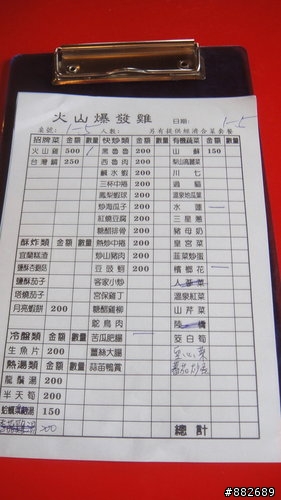 火山爆發雞
桌號: 1-5 人數: 另有提供經濟合菜套餐 日期: 1-5
招牌菜 金額 數量 快炒類 金額 數量 有機蔬菜 金額 數量
火山雞 500 1 黑魯魯 200 山蘇 150
台灣鯛 250 西魯肉 200 梨山高麗菜
鹹水蝦 200 川七
三杯中捲 200 過貓
鳳梨蝦球 200 溫泉地瓜葉
炒海瓜子 200 水蓮
紅燒豆腐 200 三星蔥
糖醋排骨 200 豬母奶
酥炸類 金額 數量 熱炒中捲 200 皇宮菜
宜蘭糕渣 炒山豬肉 200 韭菜炒蛋
鹽酥杏鮑菇 豆豉蚵 200 檳榔花
鹽酥茄子 客家小炒 人蔘菜
塔燒茄子 宮保雞丁 溫泉紅菜
月亮蝦餅 200 糖醋雞柳 山芹菜
鴕鳥肉 陸橋
冷盤類 金額 數量 苦瓜肥腸 茭白筍
生魚片 200 薑絲大腸 空心菜
熱湯類 金額 數量 蒜苗鴨賞 番茄炒蛋
龍鬚湯 200
半天筍 200
蛤蠣湯 150
200 總計
#882689